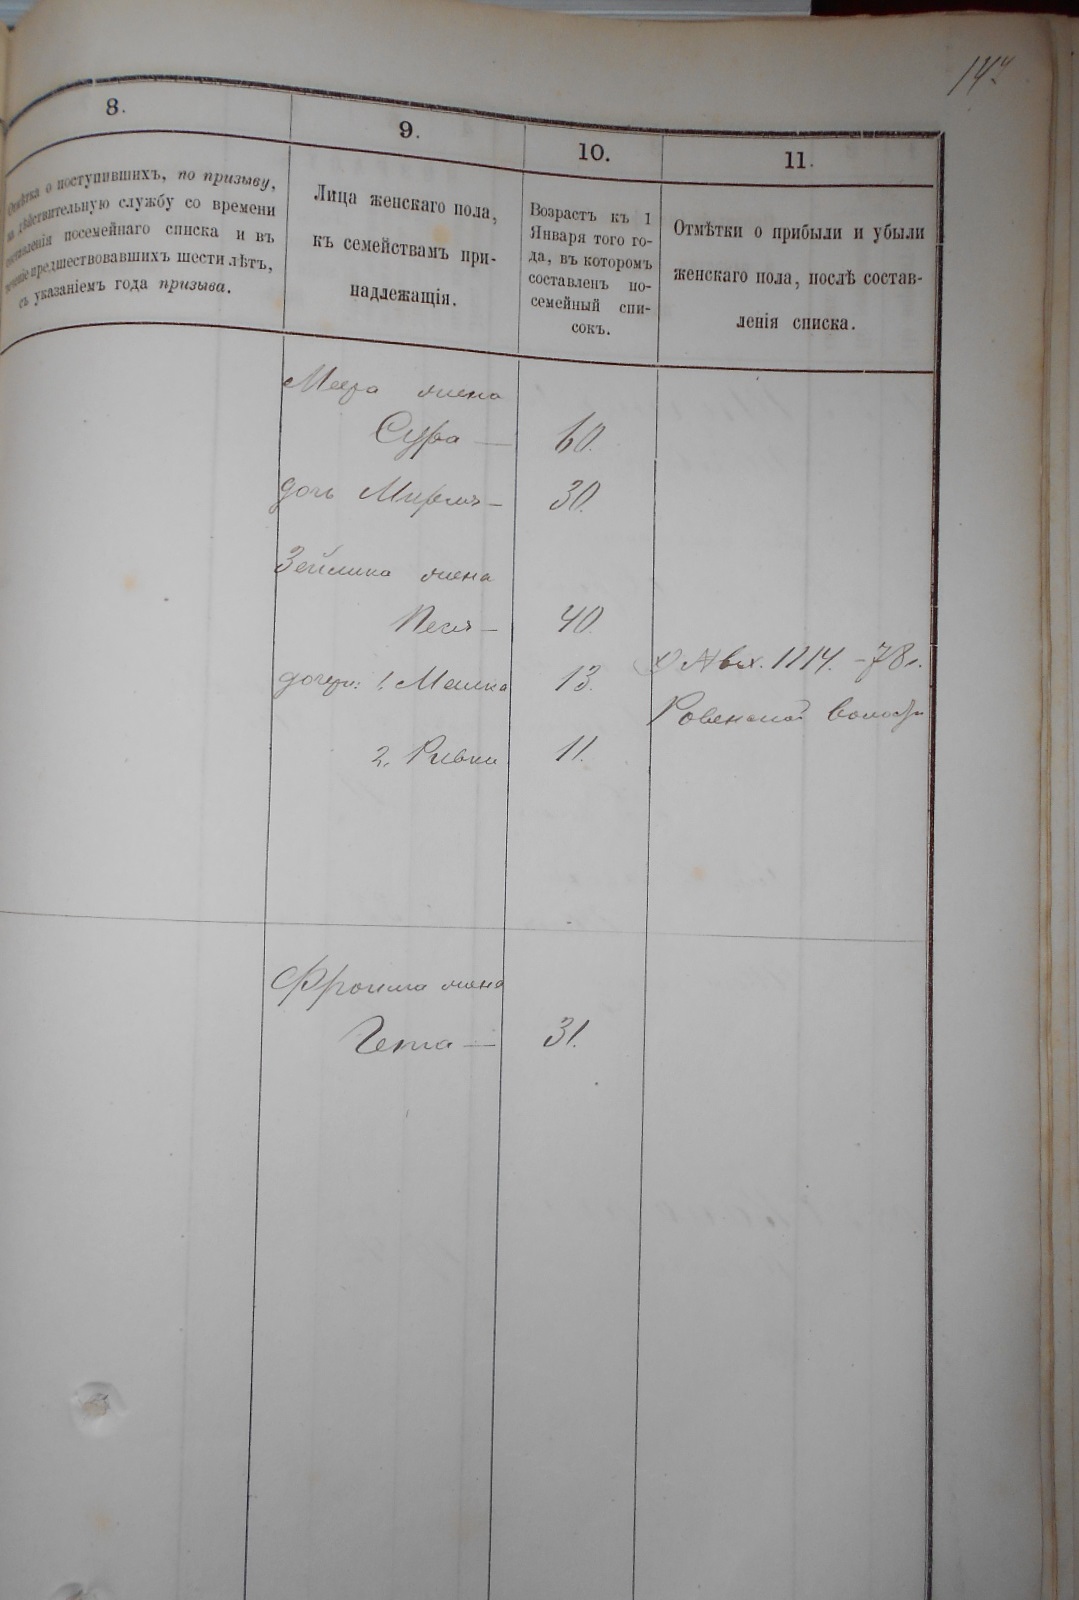 8.
9.
10.
11.
Отмѣтка о поступившихъ, по призыву,
на дѣйствительную службу со времени
составленія посемейнаго списка и въ
теченіе предшествовавшихъ шести лѣтъ,
съ указаніемъ года призыва.
Лица женскаго пола,
къ семействамъ при-
надлежащія.
Возрастъ къ 1
Января того го-
да, въ которомъ
составленъ по-
семейный спи-
сокъ.
Отмѣтки о прибыли и убыли
женскаго пола, послѣ состав-
ленія списка.
жена
Сура — 60.
дочь Мирля — 30.
Зейлика жена
Песя — 40.
дочери: 1. 13.
вх. 1114. - 78 г.
Ровенской волости
2. Ривка 11.
Фроима жена
31.